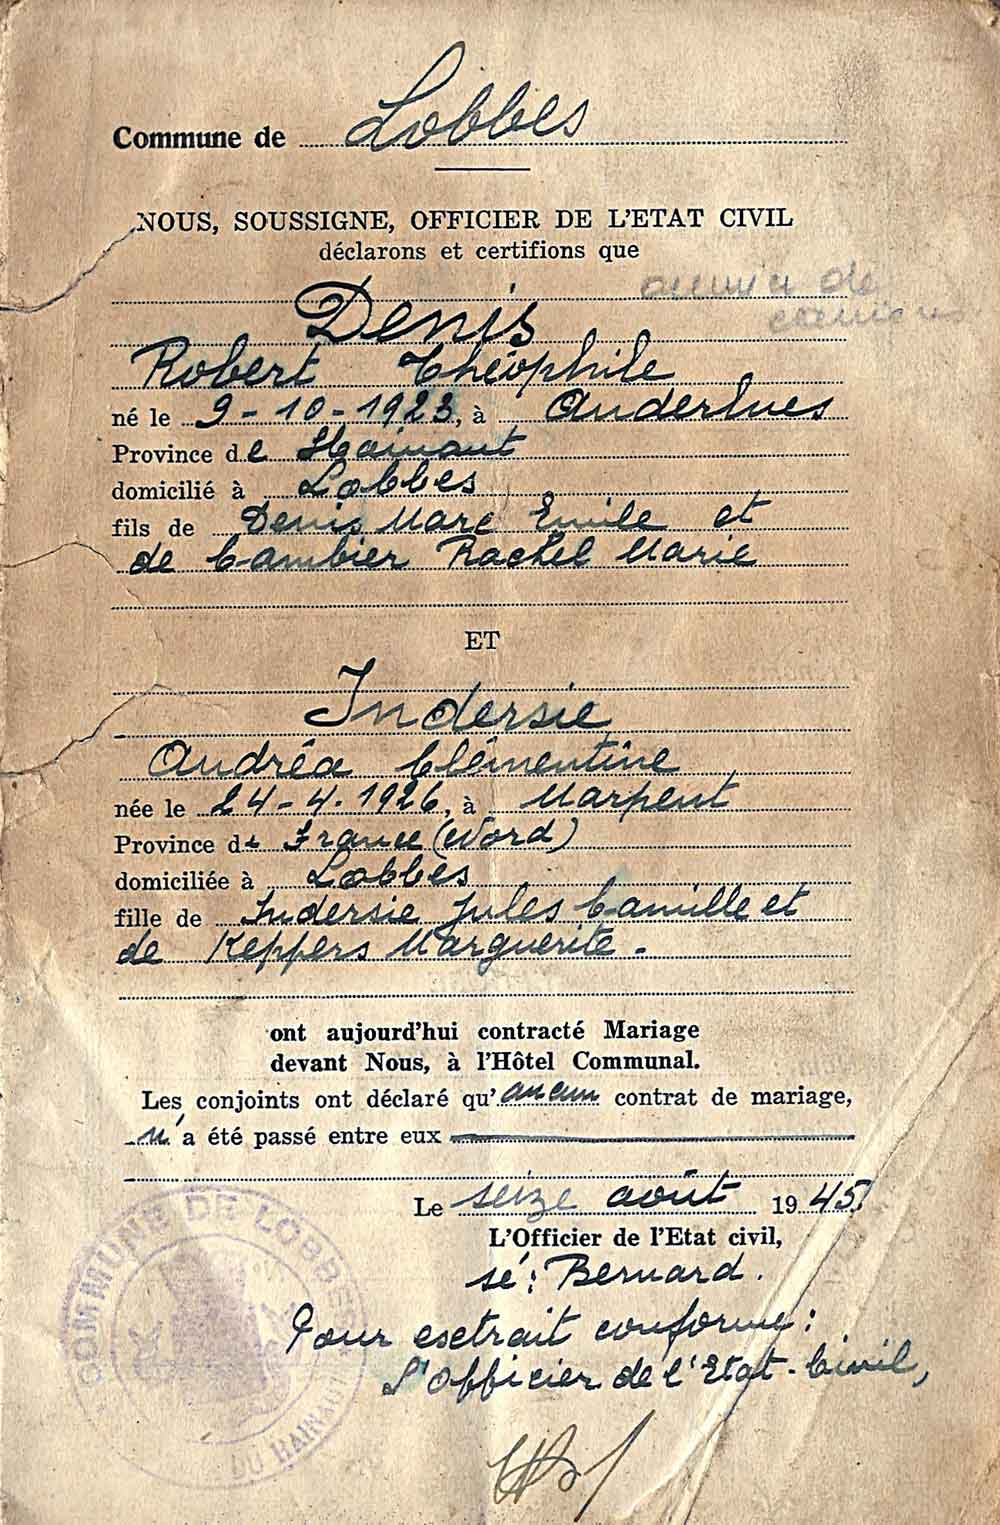 Commune de Lobbes
NOUS, SOUSSIGNE, OFFICIER DE L'ETAT CIVIL
déclarons et certifions que
Denis
Robert Théophile
né le 9-10-1923, à Anderlues
Province de Hainaut
domicilié à Lobbes
fils de Denis Marc Emile et
de Cambier Rachel Marie
ET
Indersie
Andréa Clémentine
née le 24-4-1926, à Marpent
Province de France (Nord)
domiciliée à Lobbes
fille de Indersie Jules Camille et
de Keppers Marguerite.
ont aujourd'hui contracté Mariage
devant Nous, à l'Hôtel Communal.
Les conjoints ont déclaré qu'aucun contrat de mariage,
n'a été passé entre eux
Le seize août 1945
L'Officier de l'Etat civil,
sé: Bernard.
Pour extrait conforme:
L'Officier de l'Etat-Civil,
COMMUNE DE LOBBES
DU HAINAUT